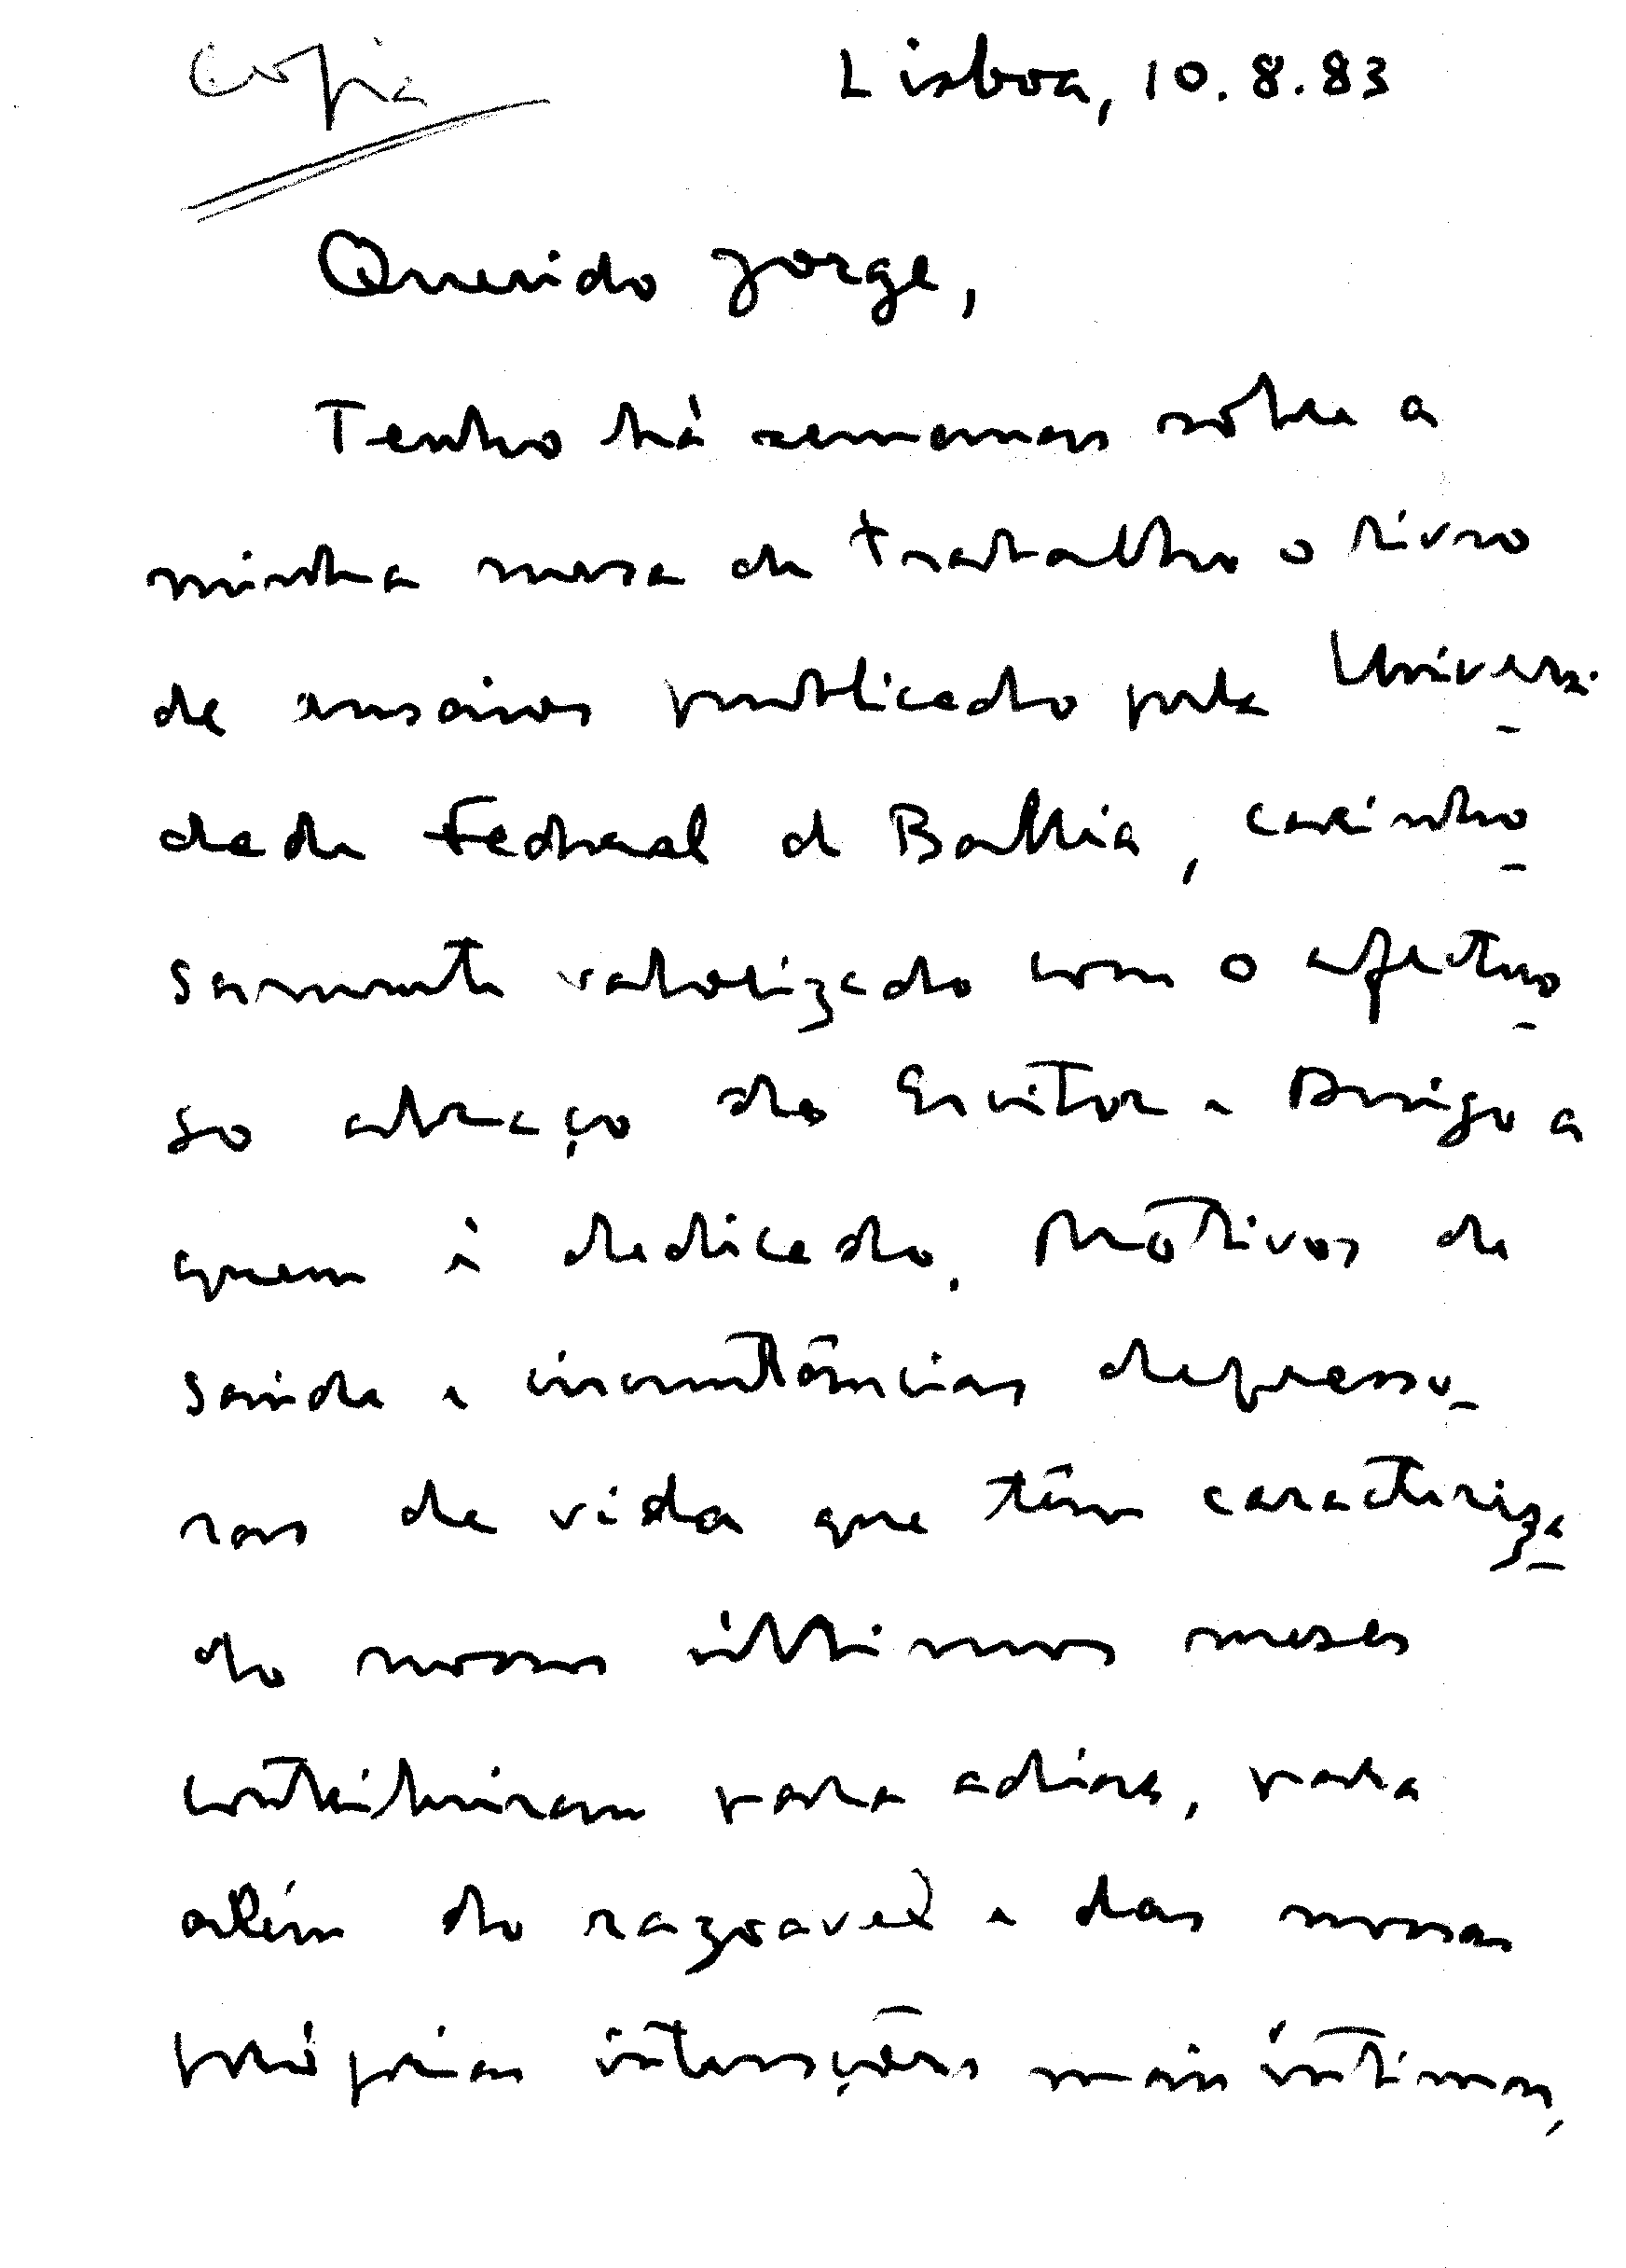 Copia
Lisboa, 10.8.83
Querido Jorge,
Tenho há semanas sôbre a
minha mesa de trabalho o livro
de ensaios publicado pela Universi-
dade Federal da Bahia, carinho-
samente valorizado com o afectuo-
so abraço do Escritor e Amigo a
quem é dedicado. Motivos de
saúde e circunstâncias depresso-
ras de vida que têm caracteriza-
do nossos últimos meses
contribuiram para adiar, para
além do razoavel e das nossas
próprias intenções mais íntimas,